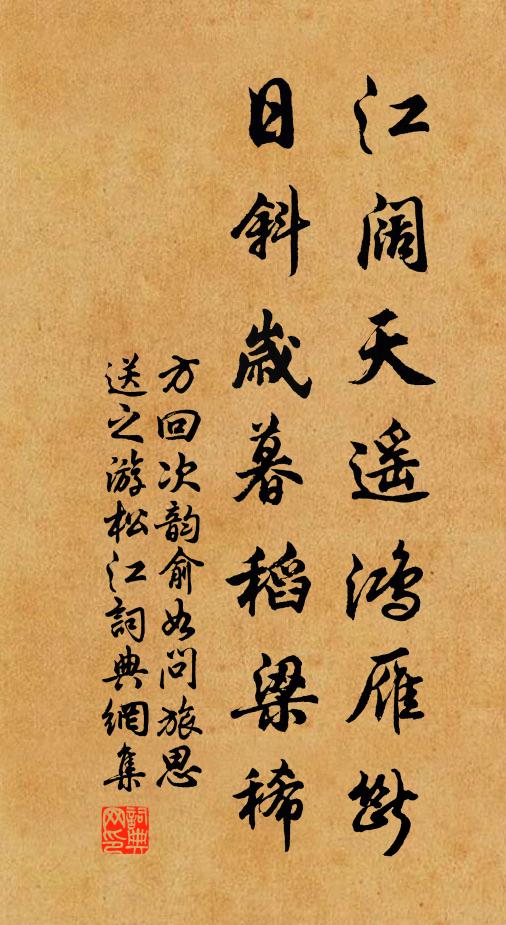 江阔天遥鸿雁断
日斜歲暮稻梁稀
方回次韵俞如问旅思
送之游松江詞典網集
詞典网印